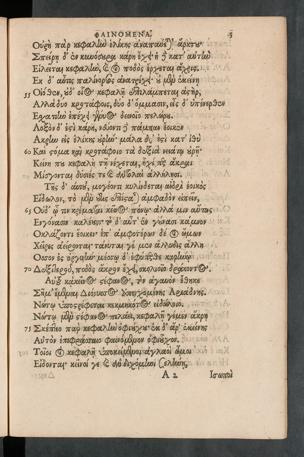 ΦΑΙΝΟΜΕΝΑ. 5
Οὐχὴ πὰρ κεφαλὴν ἑλίκης ἀναπαύετ' ἄρκτου
Σπείρη δ' ἐν κυνόσουρα κάρη ἔχει· ἡ κατ' αὐτὴν
Εἱλεῖται κεφαλὴν, καὶ ποδὸς ἔρχεται ἄχρις.
Ἐκ δ' αὖτις παλίνορσος ἀνατρέχει· οὐ μὲν ἐκείνῃ
55 Οἰόθεν, οὐδ' οἶος κεφαλῇ ἐπιλάμπεται ἀστὴρ,
Ἀλλὰ δύο κροτάφοις, δύο δ' ὄμμασιν, εἷς δ' ὑπένερθεν
Ἐσχατιὴν ἐπέχει γένυος δεινοῖο πελώρου.
Λοξὸν δ' ἐστὶ κάρη, νεύοντι δὲ πάμπαν ἔοικεν
Ἄκρην εἰς ἑλίκης οὐρήν· μάλα δ' ἐστὶ κατ' ἰθὺ
60 Καὶ στόμα καὶ κροτάφοιο τὰ δεξιὰ νειάτῃ οὐρῇ·
Κείνη που κεφαλὴ τῇ νίσσεται, ἧχί περ ἄκραι
Μίσγονται δύσιές τε καὶ ἀντολαὶ ἀλλήλαισι.
Τῆς δ' αὐτοῦ, μογέοντι κυλίνδεται ἀνδρὶ ἐοικὸς
Εἴδωλον, τὸ μὲν οὔτις ἐπίσταται ἀμφαδὸν εἰπεῖν,
65 Οὐδ' ᾧ τινι κρέμαται κεῖνος πόνῳ· ἀλλά μιν αὕτως
Ἐνγόνασιν καλέουσι· τὸ δ' αὖτ' ἐν γούνασι κάμνον
Ὀκλάζοντι ἔοικεν· ἀπ' ἀμφοτέρων δέ οἱ ὤμων
Χεῖρες ἀείρονται· τάνυται γε μὲν ἄλλυδις ἄλλη
Ὅσσον ἐς ὀργυιήν· μέσσῳ δ' ἐφύπερθε καρήνῳ
70 Δεξιτεροῦ, ποδὸς ἄκρον ἔχει, σκολιοῖο δράκοντος.
Αὐτοῦ κἀκεῖνος στέφανος, τὸν ἀγαυὸν ἔθηκε
Σῆμ' ἔμεναι Διόνυσος ἀποιχομένης Ἀριάδνης.
Νώτῳ ὑποστρέφεται κεκμηκότος εἰδώλοιο.
Νώτῳ μὲν στέφανος πελάει, κεφαλῇ γε μὲν ἄκρῃ
75 Σκέπτεο πὰρ κεφαλὴν ὀφιούχεον· ἐκ δ' ἄρ' ἐκείνης
Αὐτὸν ἐπιφράσσαιο φαεινόμενον ὀφιοῦχον.
Τοῖοί οἱ κεφαλῇ ὑποκείμενοι ἀγλαοὶ ὦμοι
Εἴδονται· κεῖνοί γε καὶ ἂν διχομήνι σελήνῃ,
A 2 Εἰσωποὶ